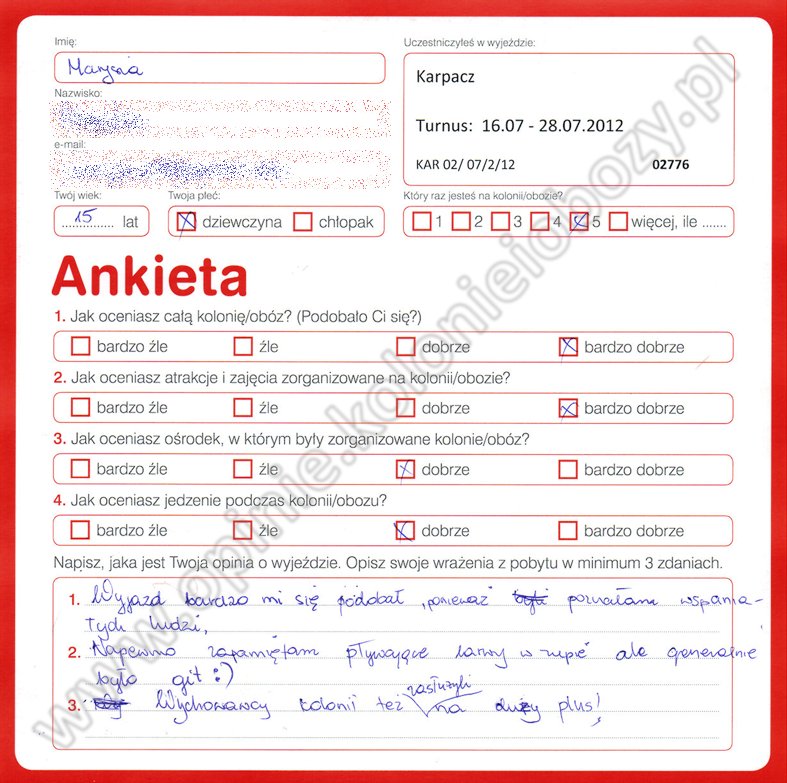 Imię:
Marysia
Nazwisko:
e-mail:
Twój wiek:
15 lat
Twoja płeć:
dziewczyna chłopak
Uczestniczyłeś w wyjeździe:
Karpacz
Turnus: 16.07 - 28.07.2012
KAR 02/ 07/2/12 02776
Który raz jesteś na kolonii/obozie?
1 2 3 4 5 więcej, ile .......
Ankieta
1. Jak oceniasz całą kolonię/obóz? (Podobało Ci się?)
bardzo źle źle dobrze bardzo dobrze
2. Jak oceniasz atrakcje i zajęcia zorganizowane na kolonii/obozie?
bardzo źle źle dobrze bardzo dobrze
3. Jak oceniasz ośrodek, w którym były zorganizowane kolonie/obóz?
bardzo źle źle dobrze bardzo dobrze
4. Jak oceniasz jedzenie podczas kolonii/obozu?
bardzo źle źle dobrze bardzo dobrze
Napisz, jaka jest Twoja opinia o wyjeździe. Opisz swoje wrażenia z pobytu w minimum 3 zdaniach.
1. Wyjazd bardzo mi się podobał, ponieważ poznałam wspania-
łych ludzi,
2. Napewno zapamiętam pływające larwy w zupie ale generalnie
było git :)
3. Wychowawcy kolonii też zasłużyli na duży plus!
www.opinie.kolonieiobozy.pl